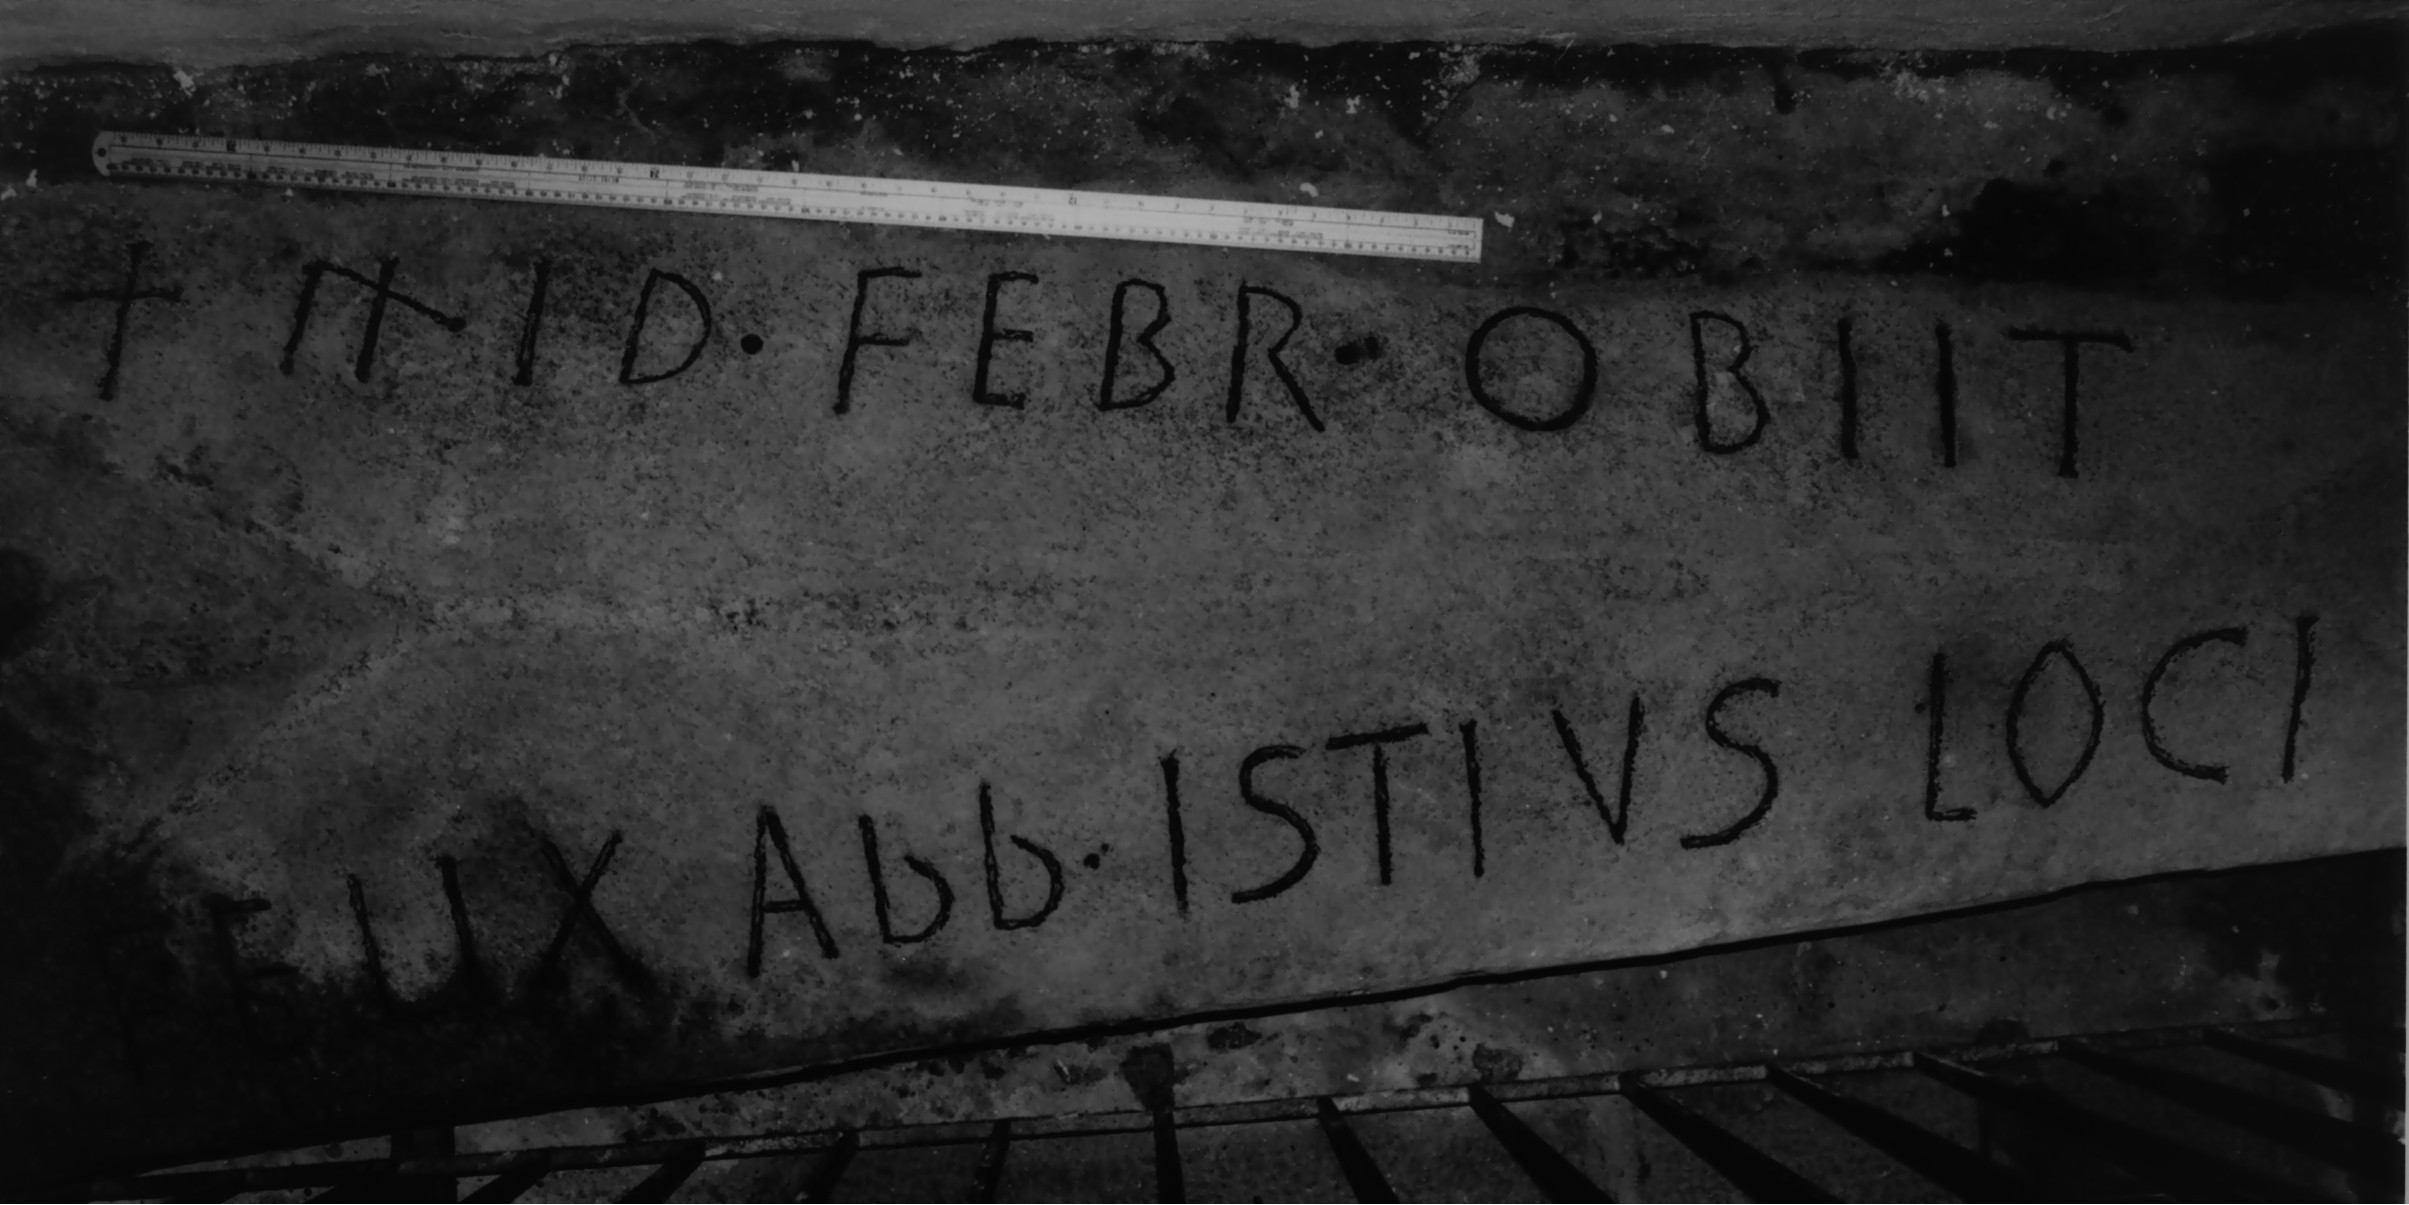 † II ID · FEBR · OBIIT
FELIX Abb · ISTIVS LOCI